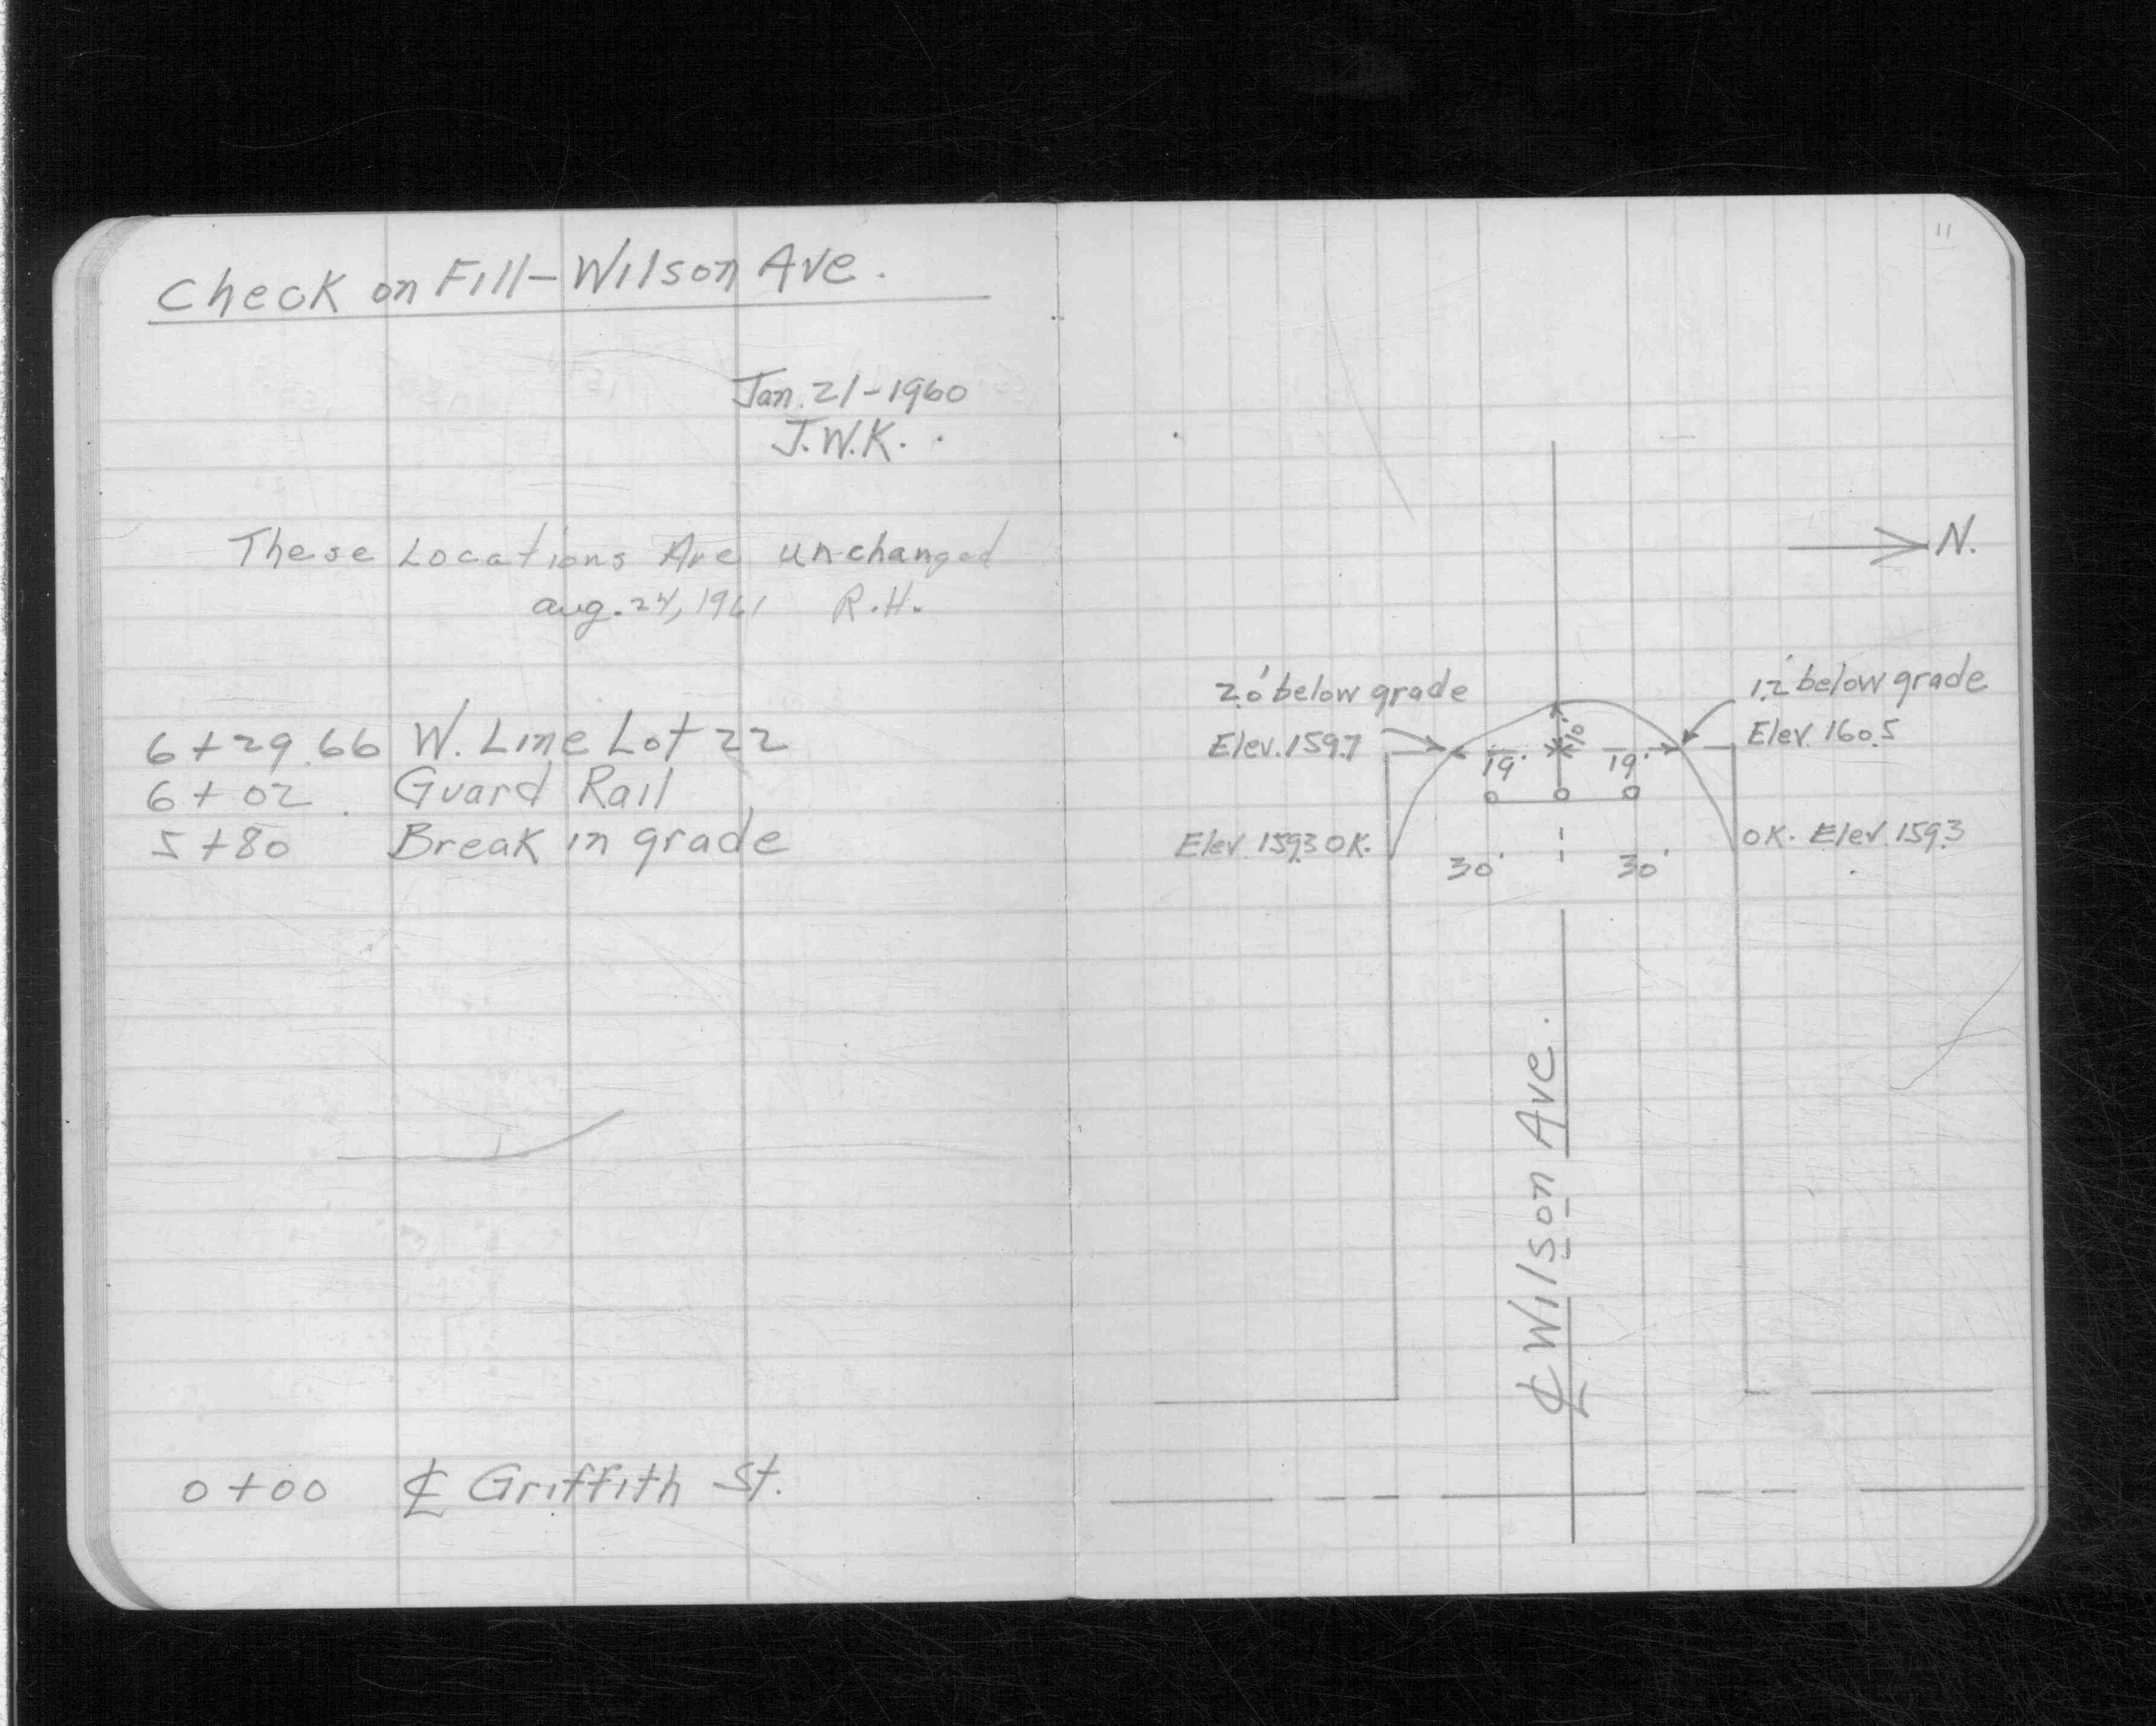 Check on Fill-Wilson Ave.
Jan. 21-1960
J.W.K.
These Locations Are unchanged
aug. 24, 1961 R.H.
6+29.66 W. Line Lot 22
6+02 Guard Rail
5+80 Break in grade
0+00 ℄ Griffith St.
11
N.
2.0' below grade
1.2' below grade
Elev. 159.7
Elev. 160.5
10'
19' 19'
Elev. 159.3 OK.
OK. Elev. 159.3
30' 30'
℄ Wilson Ave.